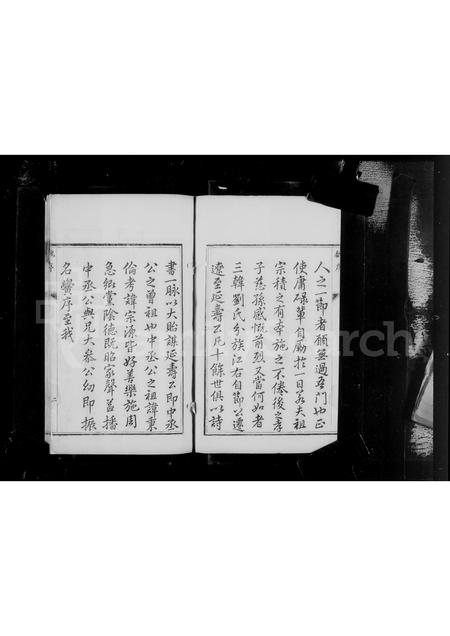 人之一節者願無過吾門也正
使庸碌輩自勵於一日若夫祖
宗積之有本施之不倦後之孝
子慈孫感慨前烈又當何如者
三韓劉氏分族江右自節公遷
遼至延壽公凡十餘世俱以詩
書一脉以大貽謀延壽公即中丞
公之曾祖也中丞公之祖諱秉
倫考諱宗源皆好善樂施周
急鄉黨陰德既昭家聲益播
中丞公與兄大叅公幼即振
名黌序至我
二